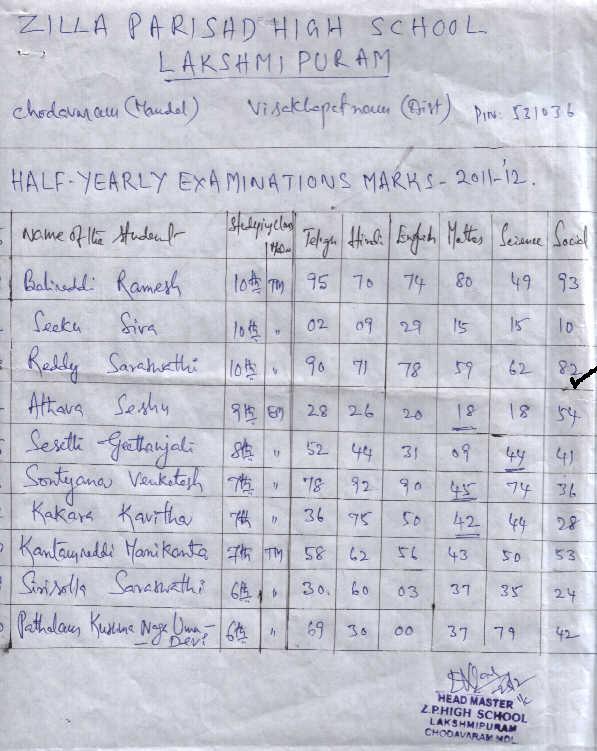 ZILLA PARISAD HIGH SCHOOL
LAKSHMIPURAM
Chodavaram (Mandal) Visakhapatnam (Dist) PIN: 531036
HALF-YEARLY EXAMINATIONS MARKS - 2011-'12.
Name of the Student Studying class Telugu Hindi English Maths Science Social
Balireddi Ramesh 10th TM 95 70 74 80 49 93
Seeku Siva 10th " 02 09 29 15 15 10
Reddy Saraswathi 10th " 90 71 78 59 62 82
Athava Seshu 9th EM 28 26 20 18 18 54
Sesetti Geethanjali 8th " 52 44 31 09 44 41
Sontyana Venkatesh 7th " 78 92 90 45 74 36
Kakara Kavitha 7th " 36 75 50 42 44 28
Kantamreddi Manikanta 7th TM 58 62 56 43 50 53
Sirisolla Saraswathi 6th " 30. 60 03 37 35 24
Pathalam Kusuma Naga Uma- 6th " 69 30 00 37 79 42
Devi
HEAD MASTER
Z.P.HIGH SCHOOL
LAKSHMIPURAM
CHODAVARAM MDL